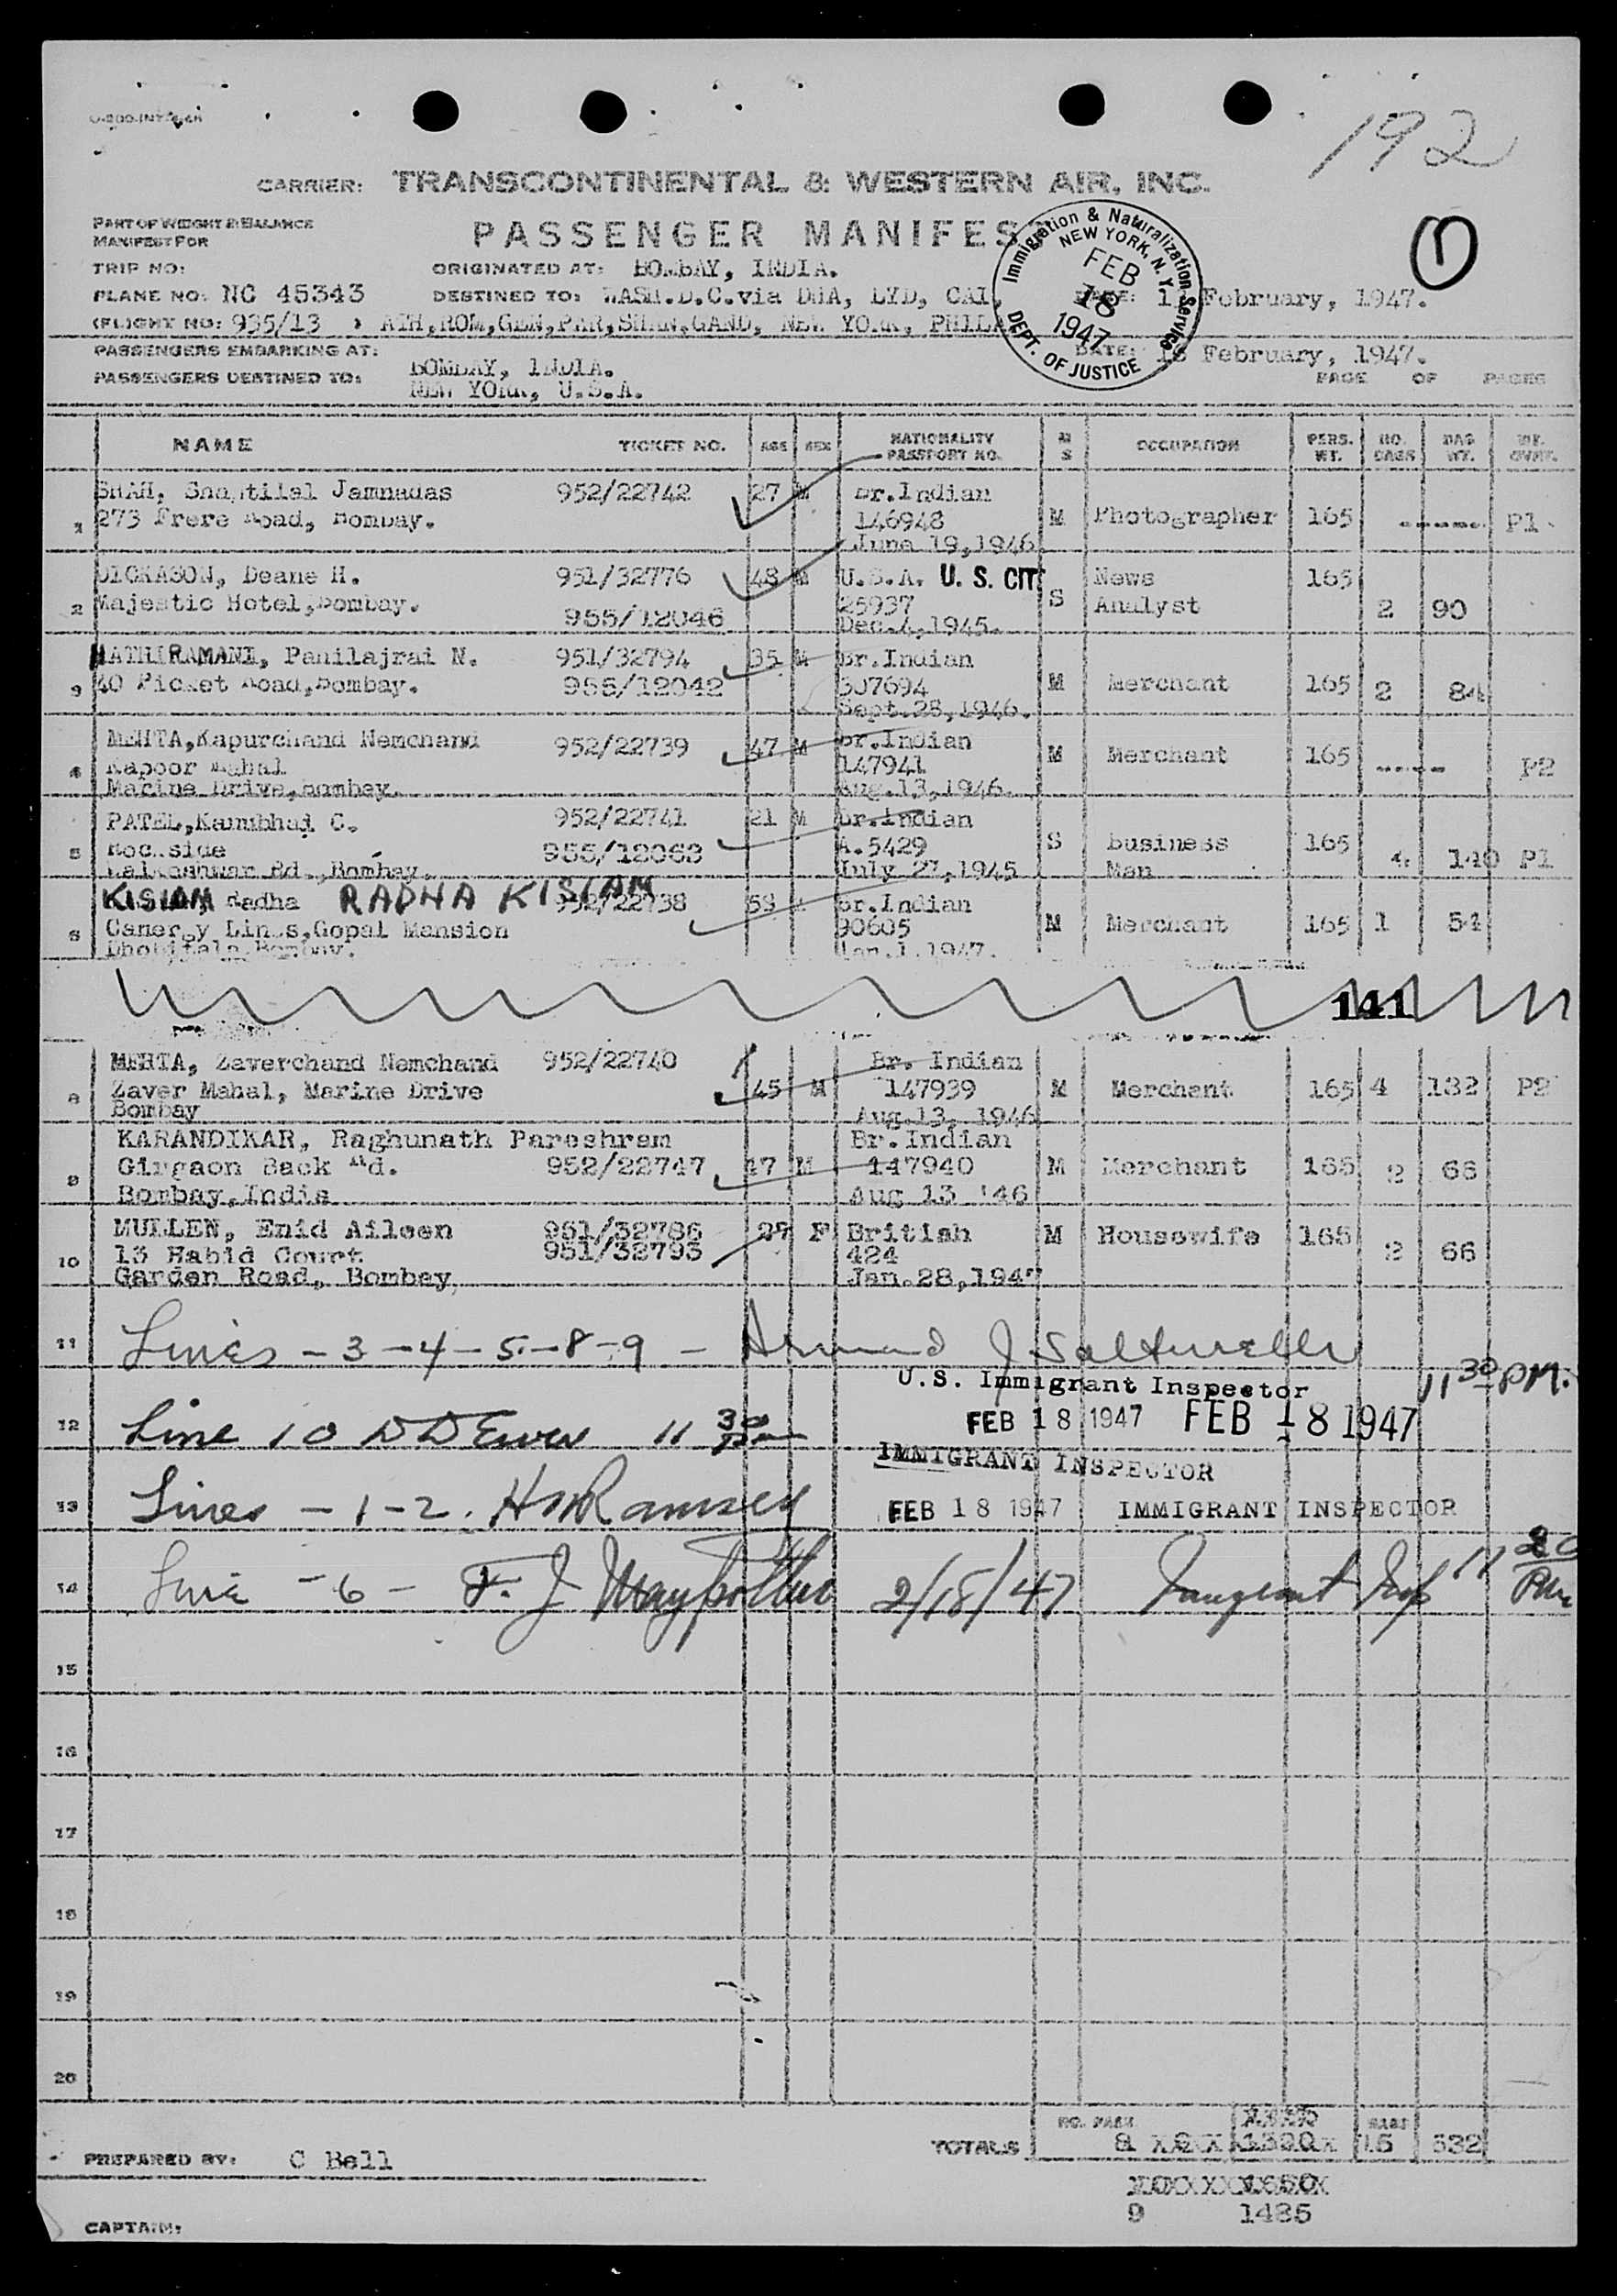 192
CARRIER: TRANSCONTINENTAL & WESTERN AIR, INC.
PART OF WEIGHT & BALANCE
MANIFEST FOR
PASSENGER MANIFES
Immigration & Naturalization Service
NEW YORK, N.Y.
FEB 18 1947
DEPT. OF JUSTICE
1
TRIP NO:
ORIGINATED AT: BOMBAY, INDIA.
PLANE NO: NC 45343
DESTINED TO: WASH.D.C.via DHA, LYD, CAI,
February, 1947.
(FLIGHT NO: 935/13 ) ATH,ROM,GEN,PAR,SHAN,GAND, NEW YORK, PHILA
PASSENGERS EMBARKING AT: BOMBAY, INDIA.
DATE: February, 1947.
PASSENGERS DESTINED TO: NEW YORK, U.S.A.
PAGE OF PAGES
NAME TICKET NO. AGE SEX NATIONALITY PASSPORT NO. M S OCCUPATION PERS. WT. NO. BAGS BAG WT.
1 SHAH, Shantilal Jamnadas 952/22742 27 M Br.Indian
273 Frere Road, Bombay. 146948 M Photographer 165 ------ P1
June 19,1946
2 DICKASON, Deane H. 951/32776 48 M U.S.A. U. S. CIT News 165
Majestic Hotel,Bombay. 955/12046 25937 S Analyst 2 90
Dec.4,1945.
3 HATHIRAMANI, Panilajrai N. 951/32794 35 M Br.Indian
40 Picket Road,Bombay. 955/12042 307694 M Merchant 165 2 84
Sept.28,1946.
4 MEHTA,Kapurchand Nemchand 952/22739 47 M Br.Indian M Merchant 165 ----- P2
Kapoor Mahal 147941
Marine Drive,Bombay. Aug.13,1946.
5 PATEL,Kanubhai C. 952/22741 21 M Br.Indian
955/12063 A.5429 S Business 165 4 140 P1
Rd.,Bombay. July 27,1945 Man
6 KISIAM Radha RADHA KISIAM 952/22738 Br.Indian
Lines,Gopal Mansion 90605 M Merchant 165 1 54
Bombay. Jan.1.1947.
141
8 MEHTA, Zaverchand Nemchand 952/22740 Br. Indian
Zaver Mahal, Marine Drive 45 M 147939 M Merchant 165 4 132 P2
Bombay Aug.13, 1946
9 KARANDIKAR, Raghunath Pareshram Br.Indian
Girgaon Back Rd. 952/22747 47 M 147940 M Merchant 165 2 66
Bombay,India Aug 13 '46
10 MULLEN, Enid Aileen 951/32786 F British M Housewife 165
13 Habid Court 951/32793 424 2 66
Garden Road, Bombay Jan.28,1947
11 Lines - 3 - 4 - 5 - 8 - 9 - Armand J
U.S. Immigrant Inspector
11 30 PM.
12 Line 10 11 30 pm FEB 18 1947 FEB 18 1947
IMMIGRANT INSPECTOR
13 Lines - 1 - 2. Ramsey FEB 18 1947 IMMIGRANT INSPECTOR
14 Line - 6 - F. J 2/18/47 11 PM
15
16
17
18
19
20
TOTALS NO. PASS. 8 1320 BAGS 15 632
PREPARED BY: C Bell
1650
9 1485
CAPTAIN: